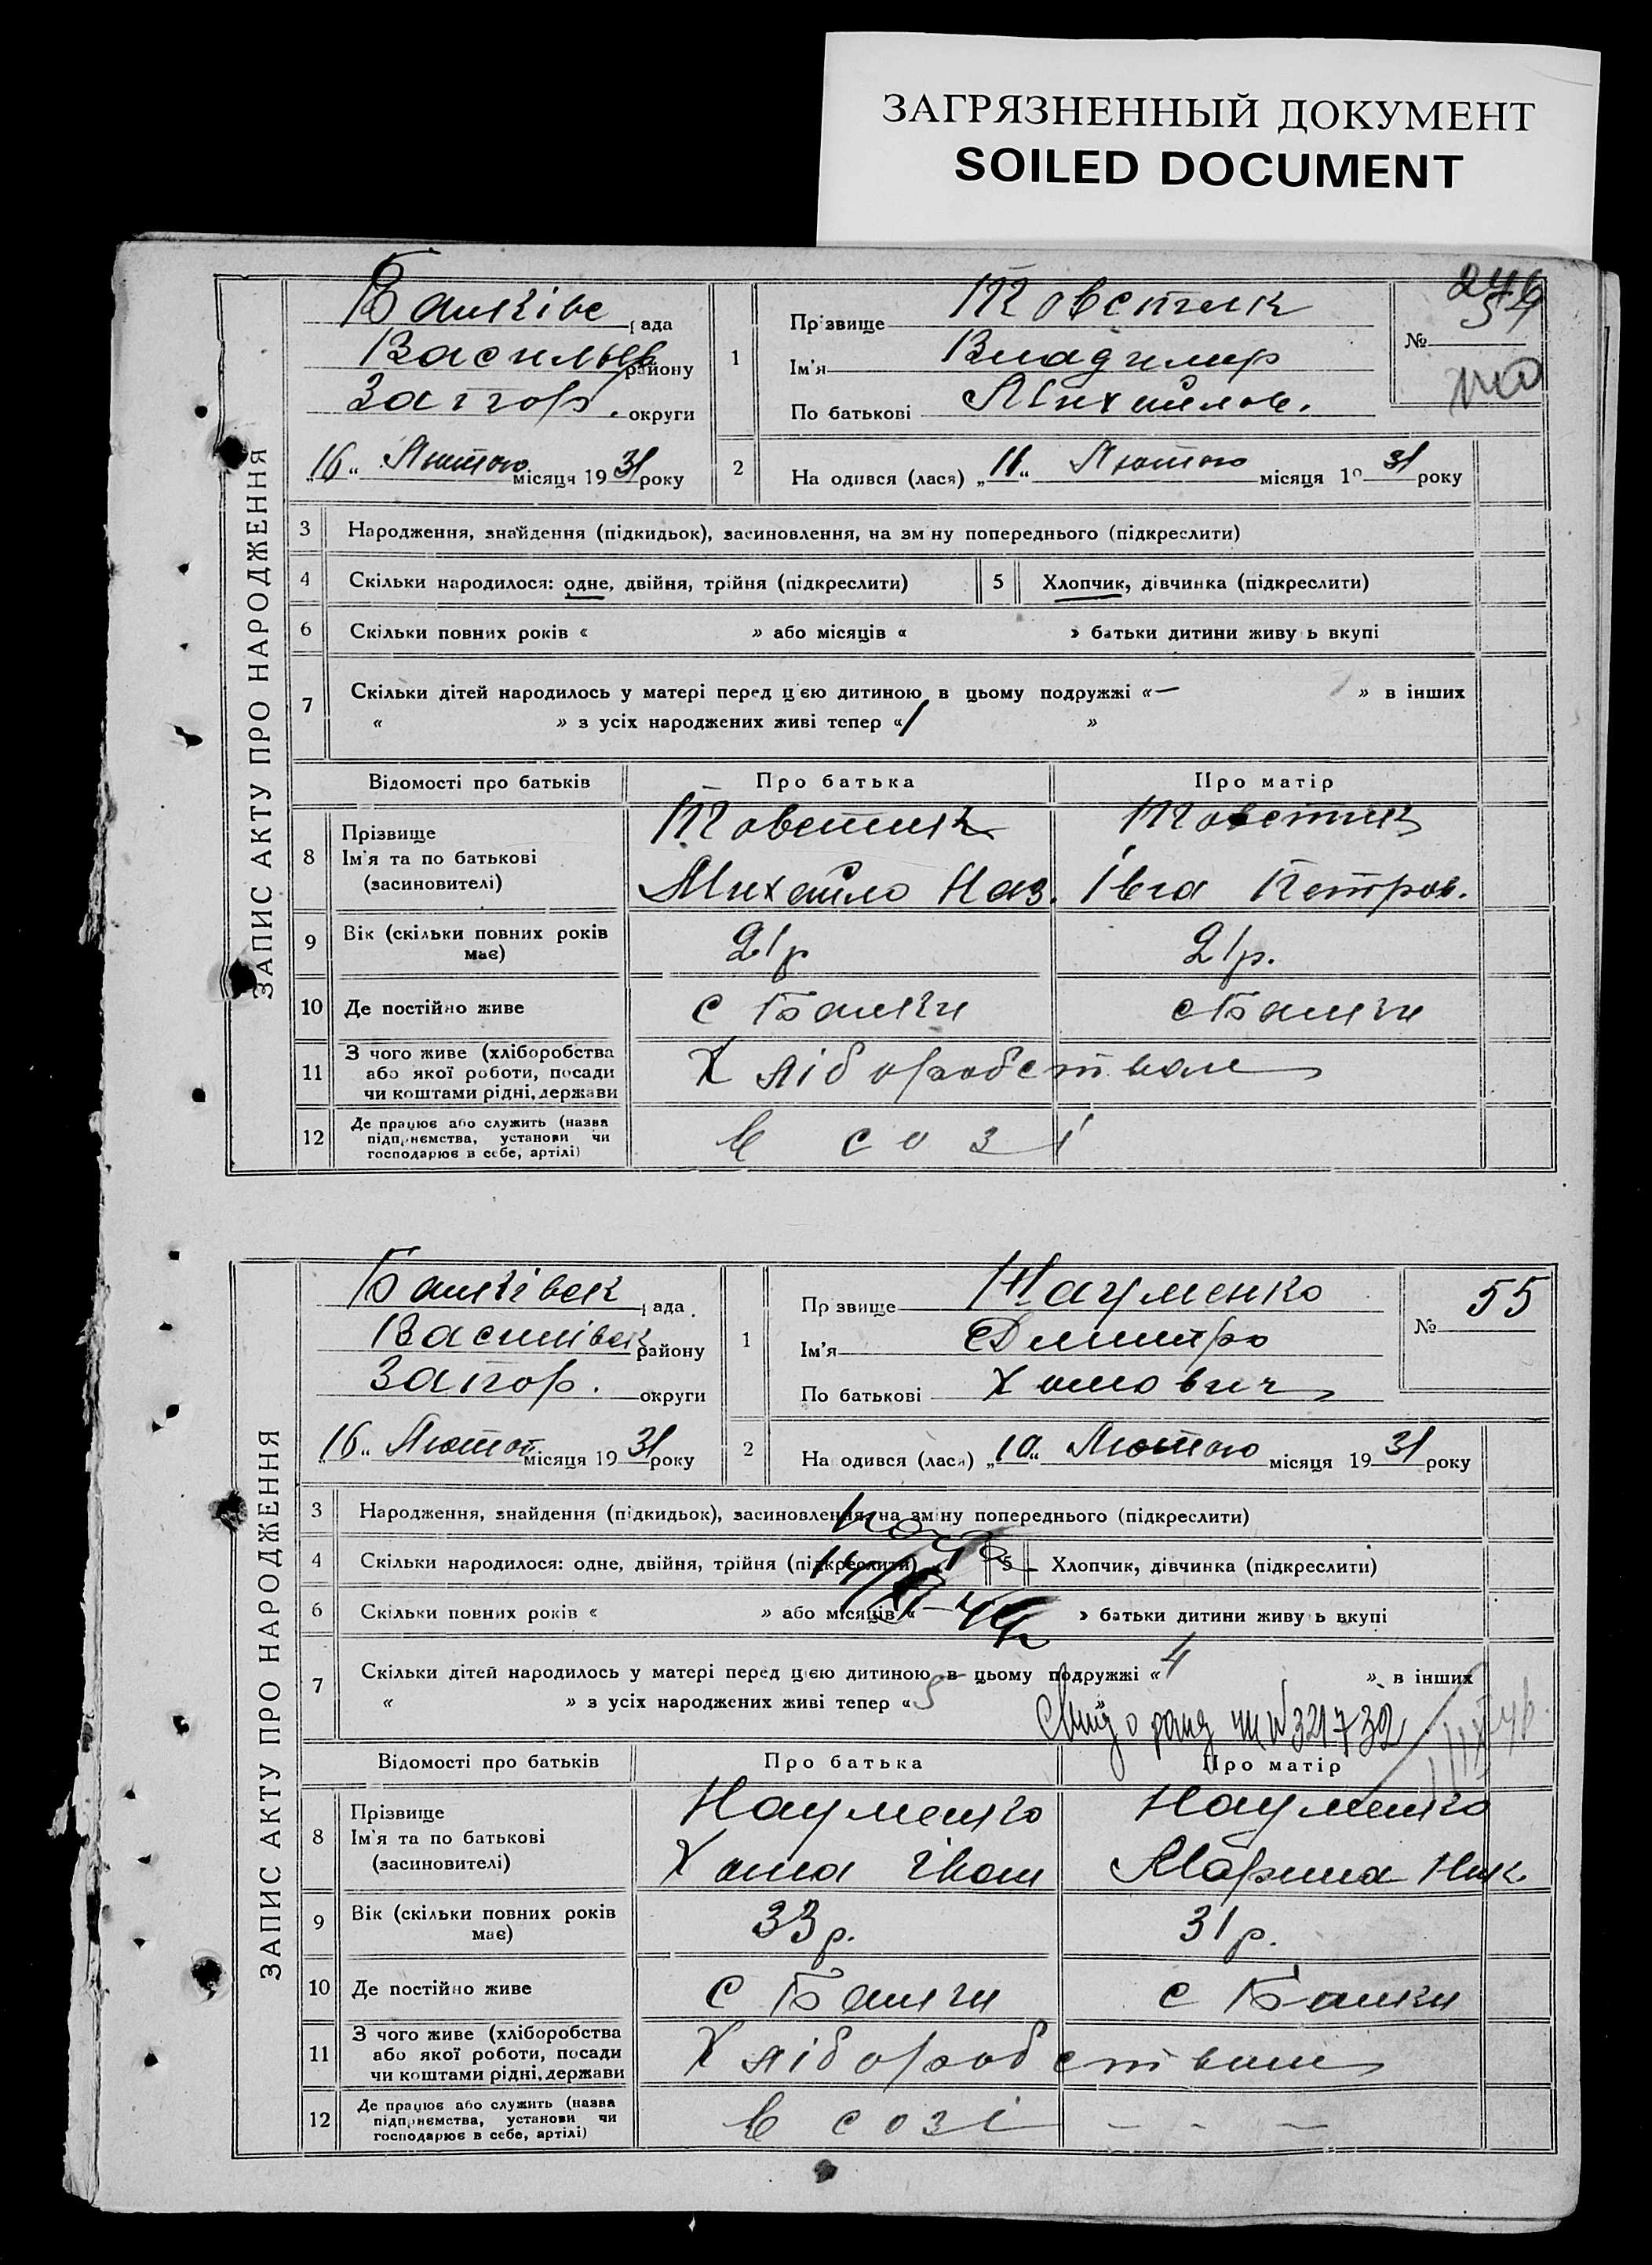 ЗАГРЯЗНЕННЫЙ ДОКУМЕНТ
SOILED DOCUMENT
246
ЗАПИС АКТУ ПРО НАРОДЖЕННЯ
Балківс рада
Васильев району
Запор. округи
„16“ Лютого місяця 1931 року
1
Прізвище Товстик
Ім'я Владимир
По батькові Михайлов.
№ 54
2
На одився (лася) „11“ Лютого місяця 19 31 року
3 Народження, знайдення (підкидьок), засиновлення, на зм ну попереднього (підкреслити)
4 Скільки народилося: одне, двійня, трійня (підкреслити) 5 Хлопчик, дівчинка (підкреслити)
6 Скільки повних років « » або місяців « » батьки дитини живу ь вкупі
7 Скільки дітей народилось у матері перед цією дитиною в цьому подружжі «— » в інших
« » з усіх народжених живі тепер «1 »
Відомості про батьків Про батька Про матір
8 Прізвище
Ім'я та по батькові
(засиновителі)
Товстик Товстик
Михайло Наз. Івга Петров.
9 Вік (скільки повних років має) 21р 21р.
10 Де постійно живе с Балки с Балки
11 З чого живе (хліборобства
або якої роботи, посади
чи коштами рідні, держави
Хліборобством
12 Де працює або служить (назва
підприємства, установи чи
господарює в себе, артілі)
в созі
ЗАПИС АКТУ ПРО НАРОДЖЕННЯ
Балківск рада
Василівск району
Запор. округи
„16“ Лютого місяця 1931 року
1
Пр звище Науменко
Ім'я Дмитро
По батькові Хомович
№ 55
2
На одився (лася) „10“ Лютого місяця 1931 року
3 Народження, знайдення (підкидьок), засиновлення, на зміну попереднього (підкреслити)
4 Скільки народилося: одне, двійня, трійня (підкреслити) 5 Хлопчик, дівчинка (підкреслити)
6 Скільки повних років « » або місяців « » батьки дитини живу ь вкупі
7 Скільки дітей народилось у матері перед цією дитиною в цьому подружжі «4 » в інших
« » з усіх народжених живі тепер «5 »
№ 321732
Відомості про батьків Про батька Про матір
8 Прізвище
Ім'я та по батькові
(засиновителі)
Науменко Науменко
Хома Іван Марина Ник.
9 Вік (скільки повних років має) 33р. 31р.
10 Де постійно живе с Балки с Балки
11 З чого живе (хліборобства
або якої роботи, посади
чи коштами рідні, держави
Хліборобством
12 Де працює або служить (назва
підприємства, установи чи
господарює в себе, артілі)
в созі — — —